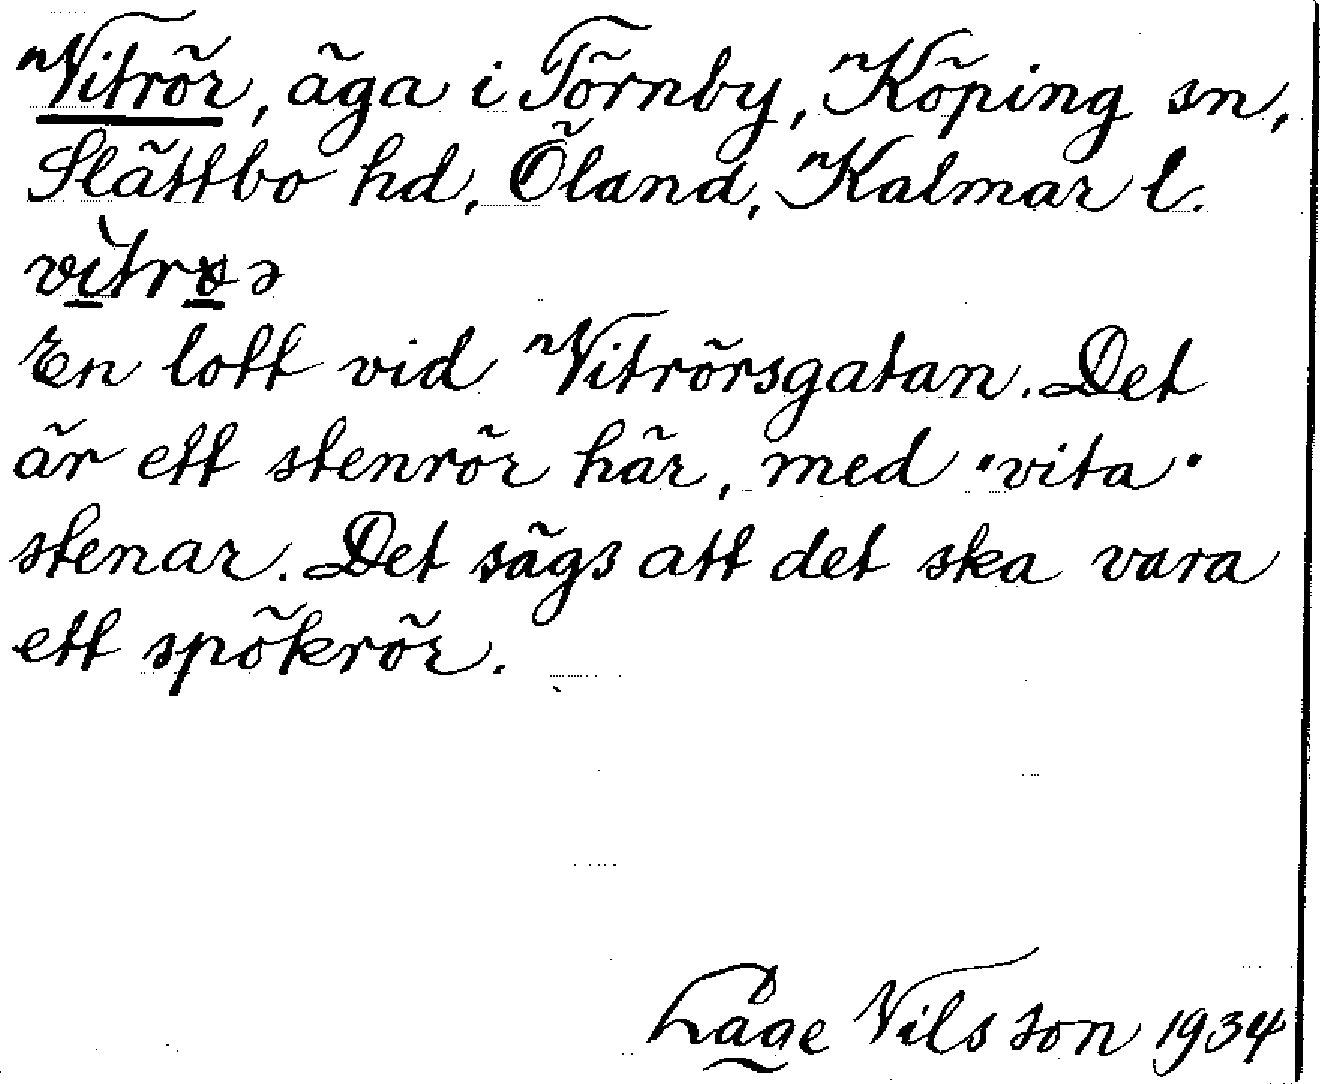 Vitrör, äga i Törnby, Köping sn,
Slättbo hd, Öland, Kalmar l.
En lott vid Vitrörsgatan. Det
är ett stenrör här, med "vita"
stenar. Det sägs att det ska vara
ett spökrör.
Låge Nilsson 1934